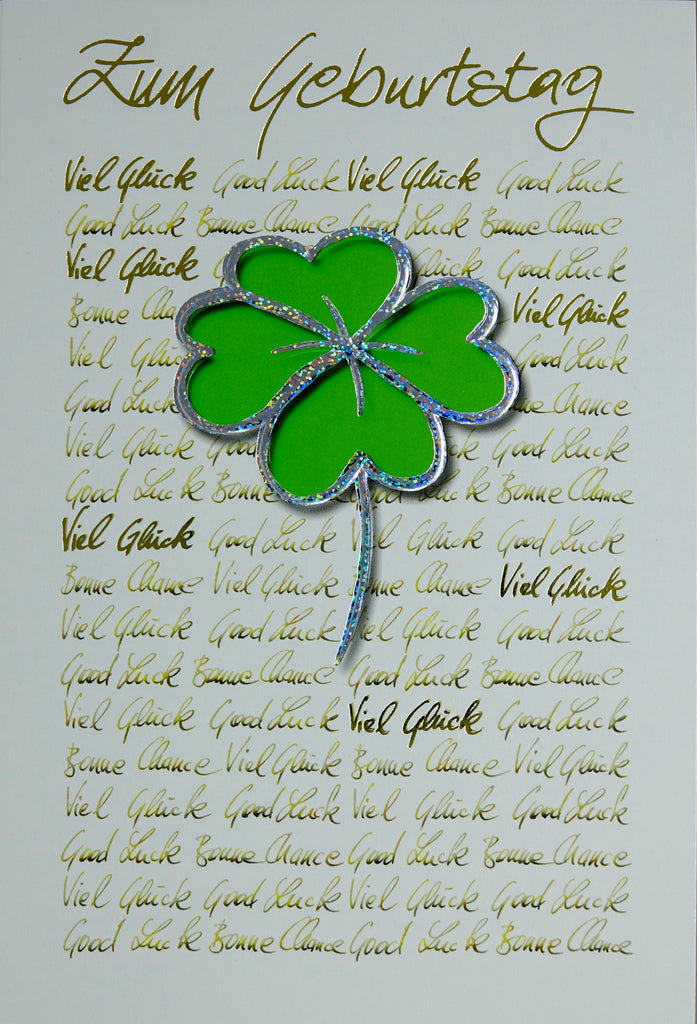 Zum Geburtstag
Viel Glück Good Luck Viel Glück Good Luck
Good Luck Bonne Chance Good Luck Bonne Chance
Viel Glück Glück Good Luck
Bonne Viel Glück
Viel Good Luck
Good Luck Chance
Viel Glück Good Luck
Good Luck Bonne Bonne Chance
Viel Glück Good Luck Viel Glück Good Luck
Bonne Chance Viel Glück Bonne Chance Viel Glück
Viel Glück Good Luck Viel Glück Good Luck
Good Luck Bonne Chance Good Luck Bonne Chance
Viel Glück Good Luck Viel Glück Good Luck
Bonne Chance Viel Glück Bonne Chance Viel Glück
Viel Glück Good Luck Viel Glück Good Luck
Good Luck Bonne Chance Good Luck Bonne Chance
Viel Glück Good Luck Viel Glück Good Luck
Good Luck Bonne Chance Good Luck Bonne Chance